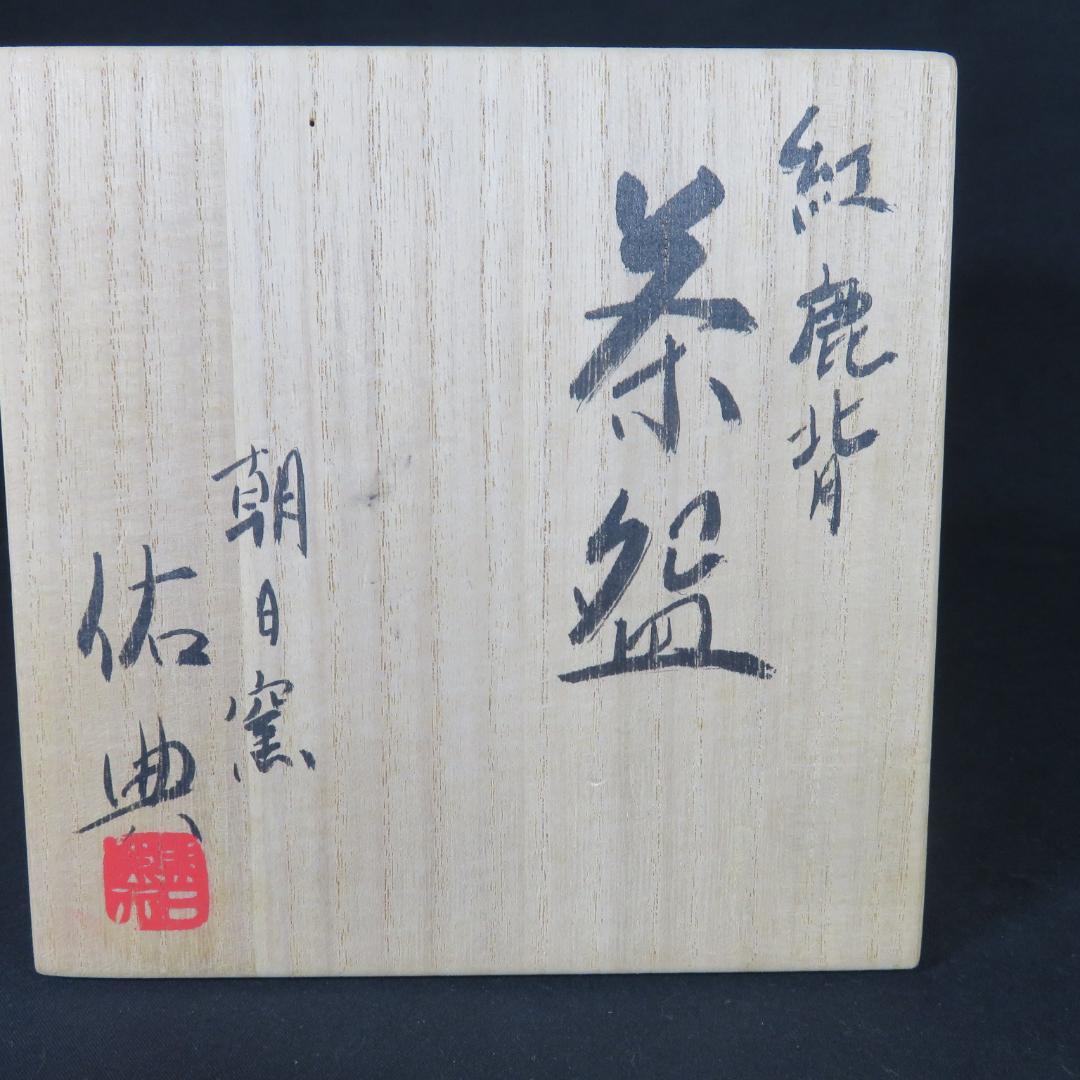 紅鹿背
茶盌
朝日窯
佑典